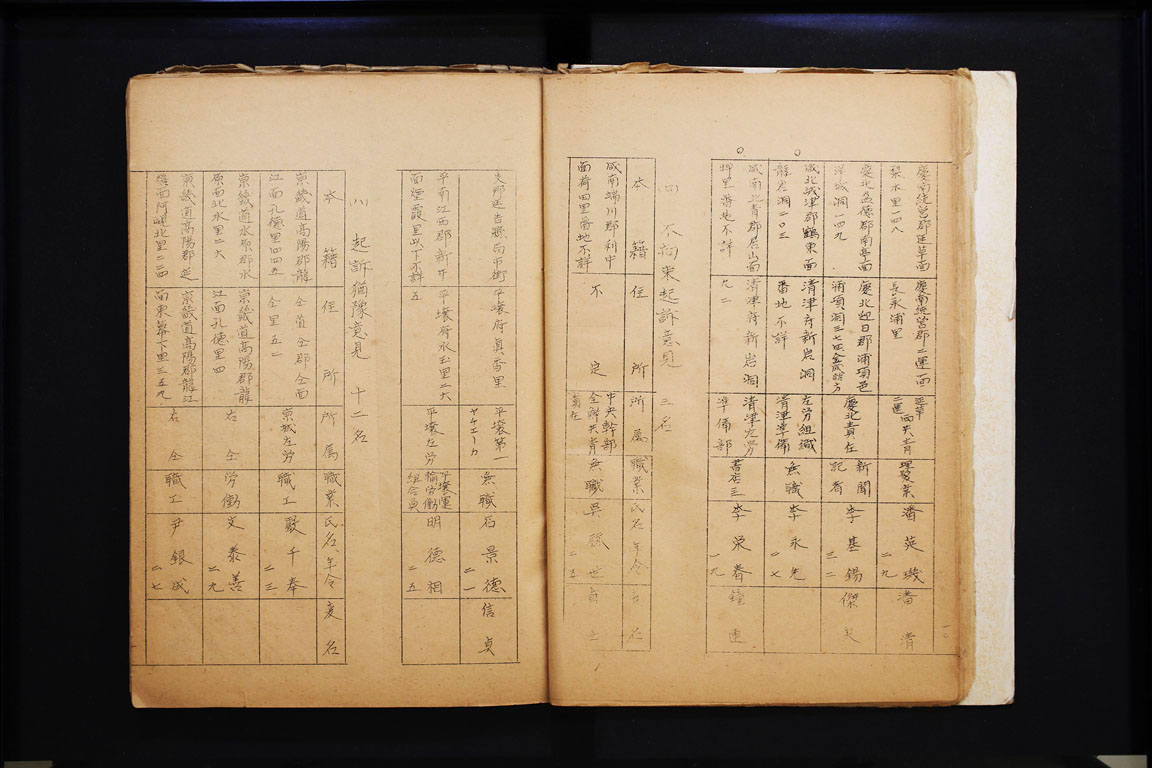 慶南統営郡
梨水里一四八
慶南統営郡二運面
長承浦里
二運面共青
理髪業
潘英璣
二九
潘清
慶北盈徳郡南亭面
洋城洞一四九
慶北迎日郡浦項邑
浦項洞三七
慶北責任
新聞
記者
李基錫
三二
傑
咸北城津郡鶴東面
龍岩洞二〇三
清津府新岩洞
番地不詳
左労組織
清津準備
無職
李永先
二七
咸南北青郡居山面
坪里番地不詳
清津府新岩洞
九二
清津左労
準備部
書店
李栄春
一九
鐘
(四)不拘束起訴意見 三名
本籍
住所
所属
職業
氏名年令
変名
咸南端川郡利中
面荷田里番地不詳
不定
中央幹部
全州共青
責任
無職
呉
世
平壌府真香里
平壌第一
ヤチェーカ
無職
石景徳
二一
信貞
平南江西郡新井
面煙霞里以下不詳
平壌府水玉里二六
五
平壌左労
平壌運
輸労働
組合員
明徳相
二五
(八)起訴猶豫意見 十二名
本籍
住所
所属
職業
氏名、年令
変名
京畿道高陽郡龍
江面孔徳里四四五
仝道仝郡仝面
仝里五二
京城左労
職工
厳千奉
二三
京畿道水原郡水
原南北水里二六
京畿道高陽郡龍
江面孔徳里四
右仝
労働
文泰善
二九
京畿道高陽郡延
禧面阿峴北里二二四
京畿道高陽郡龍江
面東幕下里三五九
右仝
職工
尹銀成
二七